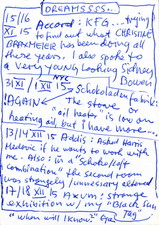 DREAMSSSS..
15/16 Accord: KFG... trying
XI 15 to find out what CHRISTINE
BRAKMEIER has been doing all
these years. I also spoke to
a very young looking Sidney
Bowen
31/XI/1 XII 15 NYC Schokoladenfabrik:
AGAIN! The stove or
heating oil "oil heater" is low on
but I have more...
13/14 XII 15 Addis: Ashot Harris
Mederic if he wants to work with
me. Also: in a "Schoko/loft
combination" the second room
was strangely/unnecessary altered
17/18 XII 15 Axum: strange
exhibition w/ my "Black Sun
"when will I know?"